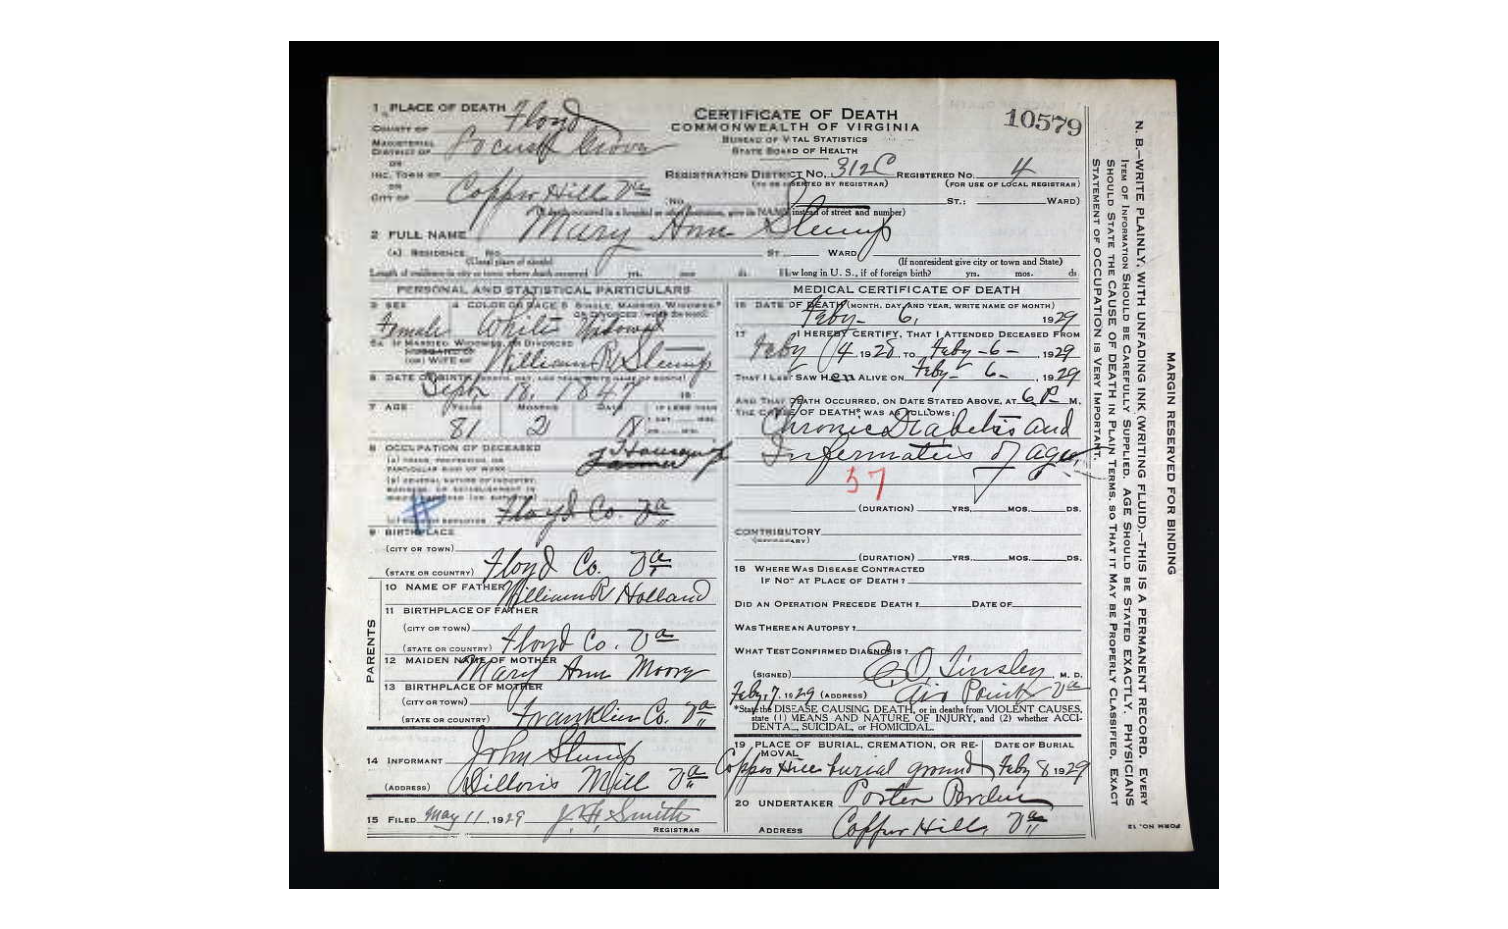 1 PLACE OF DEATH
COUNTY OF Floyd
MAGISTERIAL DISTRICT OF Locust Grove
OR
INC. TOWN OF
OR
CITY OF Copper Hill Va No.
CERTIFICATE OF DEATH
COMMONWEALTH OF VIRGINIA
BUREAU OF VITAL STATISTICS
STATE BOARD OF HEALTH
10579
REGISTRATION DISTRICT NO. 312C REGISTERED NO. 4
(TO BE INSERTED BY REGISTRAR) (FOR USE OF LOCAL REGISTRAR)
ST.; WARD)
(If death occurred in a hospital or other institution, give its NAME instead of street and number)
2 FULL NAME Mary Ann Slump
(A) RESIDENCE. NO. ST. WARD
(Usual place of abode) (If nonresident give city or town and State)
Length of residence in city or town where death occurred yrs. mos. ds. How long in U. S., if of foreign birth? yrs. mos. ds
PERSONAL AND STATISTICAL PARTICULARS
3 SEX 4 COLOR OR RACE 5 SINGLE, MARRIED, WIDOWED, OR DIVORCED (write the word)
Female White Widowed
5A IF MARRIED, WIDOWED, OR DIVORCED
HUSBAND OF
(OR) WIFE OF William R Slump
6 DATE OF BIRTH (MONTH, DAY, AND YEAR, WRITE NAME OF MONTH)
Sept. 18, 1847 18
7 AGE YEARS MONTHS DAYS IF LESS THAN
81 2
8 OCCUPATION OF DECEASED
(A) TRADE, PROFESSION, OR
PARTICULAR KIND OF WORK
Floyd Co. Va
9 BIRTHPLACE
(CITY OR TOWN)
(STATE OR COUNTRY) Floyd Co. Va
PARENTS
10 NAME OF FATHER William R Holland
11 BIRTHPLACE OF FATHER
(CITY OR TOWN)
(STATE OR COUNTRY) Floyd Co. Va
12 MAIDEN NAME OF MOTHER Mary Ann Moory
13 BIRTHPLACE OF MOTHER
(CITY OR TOWN)
(STATE OR COUNTRY) Franklin Co. Va
14 INFORMANT John Slump
(ADDRESS) Dillons Mill Va
15 FILED May 11, 1929 J. H. Smith
REGISTRAR
MEDICAL CERTIFICATE OF DEATH
16 DATE OF DEATH (MONTH, DAY, AND YEAR, WRITE NAME OF MONTH)
Feby- 6, 1929
17 I HEREBY CERTIFY, THAT I ATTENDED DECEASED FROM
Feby 14 1928 TO Feby-6-, 1929
THAT I LAST SAW HER ALIVE ON Feby- 6-, 1929
AND THAT DEATH OCCURRED, ON DATE STATED ABOVE, AT 6 P. M.
THE CAUSE OF DEATH* WAS AS FOLLOWS:
Chronic Diabetis and
Infermaties of age,
57
(DURATION) YRS. MOS. DS.
CONTRIBUTORY
(SECONDARY)
(DURATION) YRS. MOS. DS.
18 WHERE WAS DISEASE CONTRACTED
IF NOT AT PLACE OF DEATH?
DID AN OPERATION PRECEDE DEATH? DATE OF
WAS THERE AN AUTOPSY?
WHAT TEST CONFIRMED DIAGNOSIS?
(SIGNED) C. O. Tinsley, M. D.
Feby, 7, 1929 (ADDRESS) Air Point Va
*State the DISEASE CAUSING DEATH, or in deaths from VIOLENT CAUSES,
state (1) MEANS AND NATURE OF INJURY, and (2) whether ACCI-
DENTAL, SUICIDAL, or HOMICIDAL.
19 PLACE OF BURIAL, CREMATION, OR RE-
MOVAL DATE OF BURIAL
Copper Hill burial ground Feby 8 1929
20 UNDERTAKER
ADDRESS Copper Hill, Va
N. B.—WRITE PLAINLY, WITH UNFADING INK (WRITING FLUID).—THIS IS A PERMANENT RECORD. EVERY
ITEM OF INFORMATION SHOULD BE CAREFULLY SUPPLIED. AGE SHOULD BE STATED EXACTLY. PHYSICIANS
SHOULD STATE THE CAUSE OF DEATH IN PLAIN TERMS, SO THAT IT MAY BE PROPERLY CLASSIFIED. EXACT
STATEMENT OF OCCUPATION IS VERY IMPORTANT.
MARGIN RESERVED FOR BINDING
FORM NO. 12